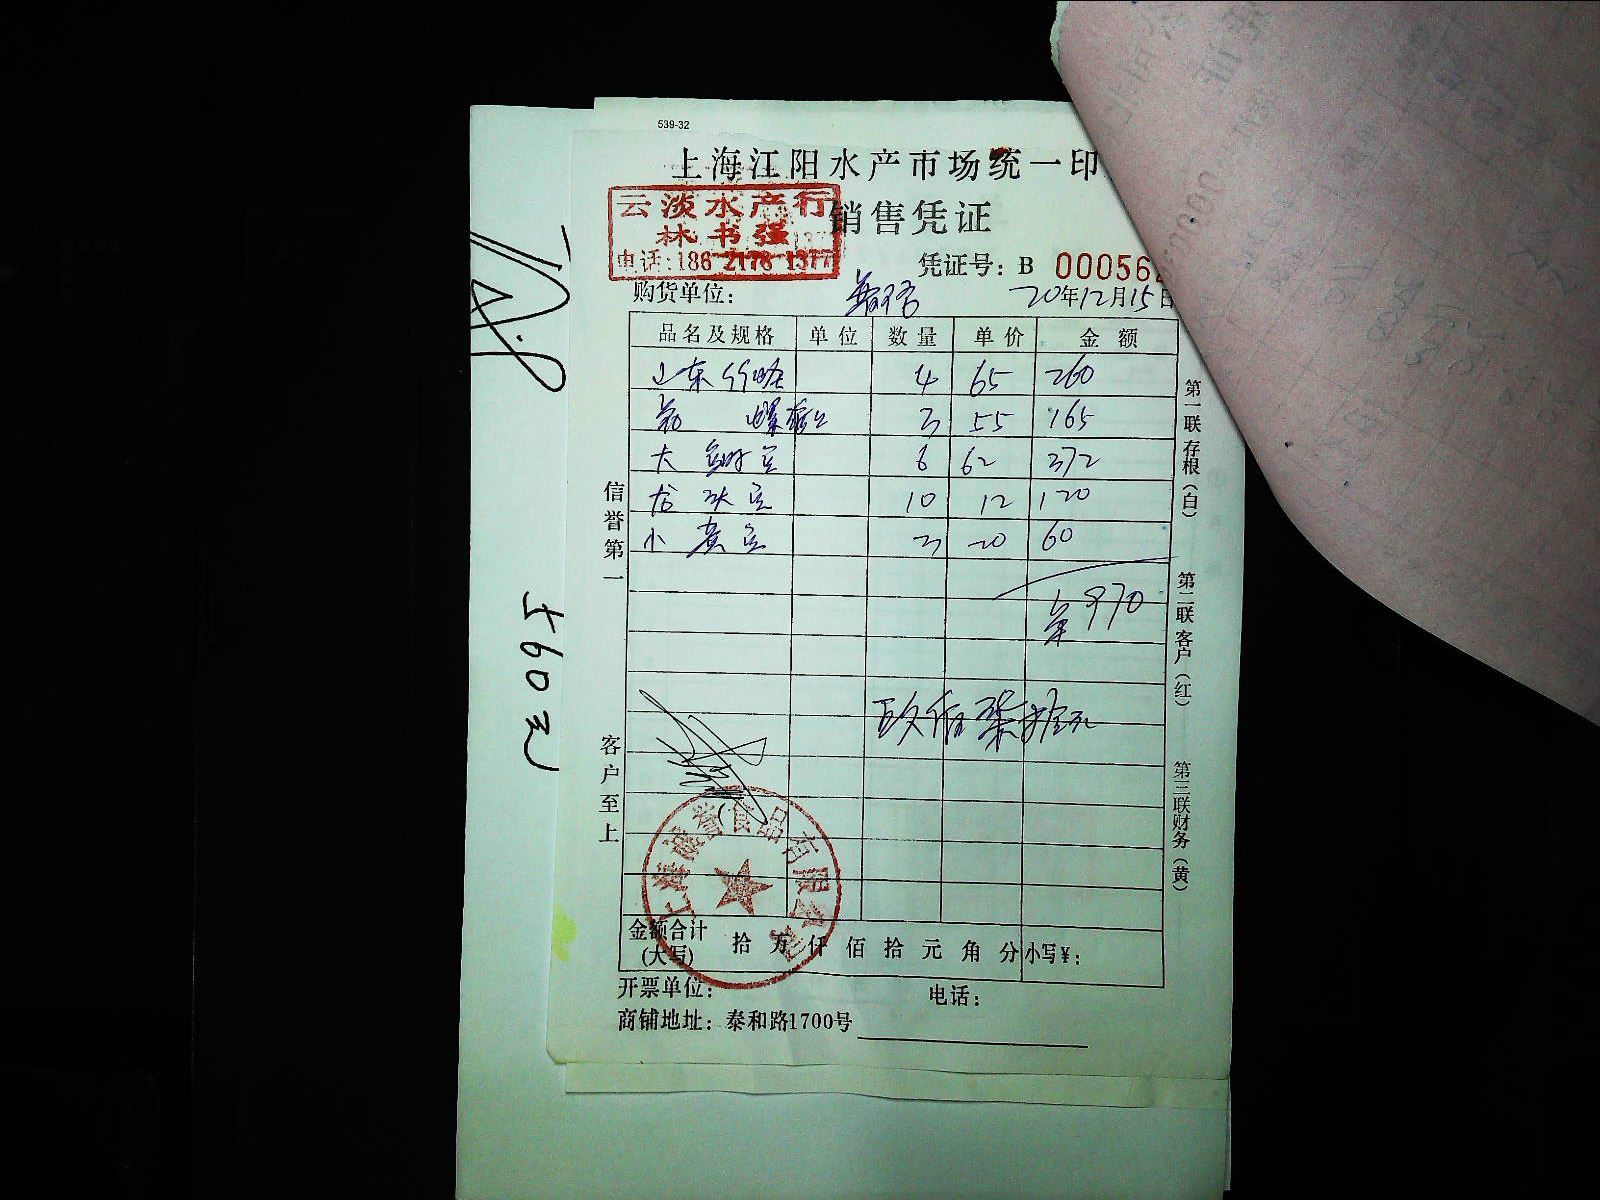 539-32
上海江阳水产市场统一印
云淡水产行
林书强
电话:186 2178 1377
销售凭证
凭证号: B 00056
购货单位:
20年12月15日
品名及规格 单位 数量 单价 金额
山东 4 65 260
螺 3 55 165
大 6 62 372
龙 10 12 120
小黄 3 20 60
970
玖佰柒拾元
信誉第一
客户至上
第一联存根(白)
第二联客户(红)
第三联财务(黄)
560元
上海 誉食品有限公司
金额合计
(大写)
拾 万 仟 佰 拾 元 角 分 小写¥:
开票单位:
电话:
商铺地址: 泰和路1700号